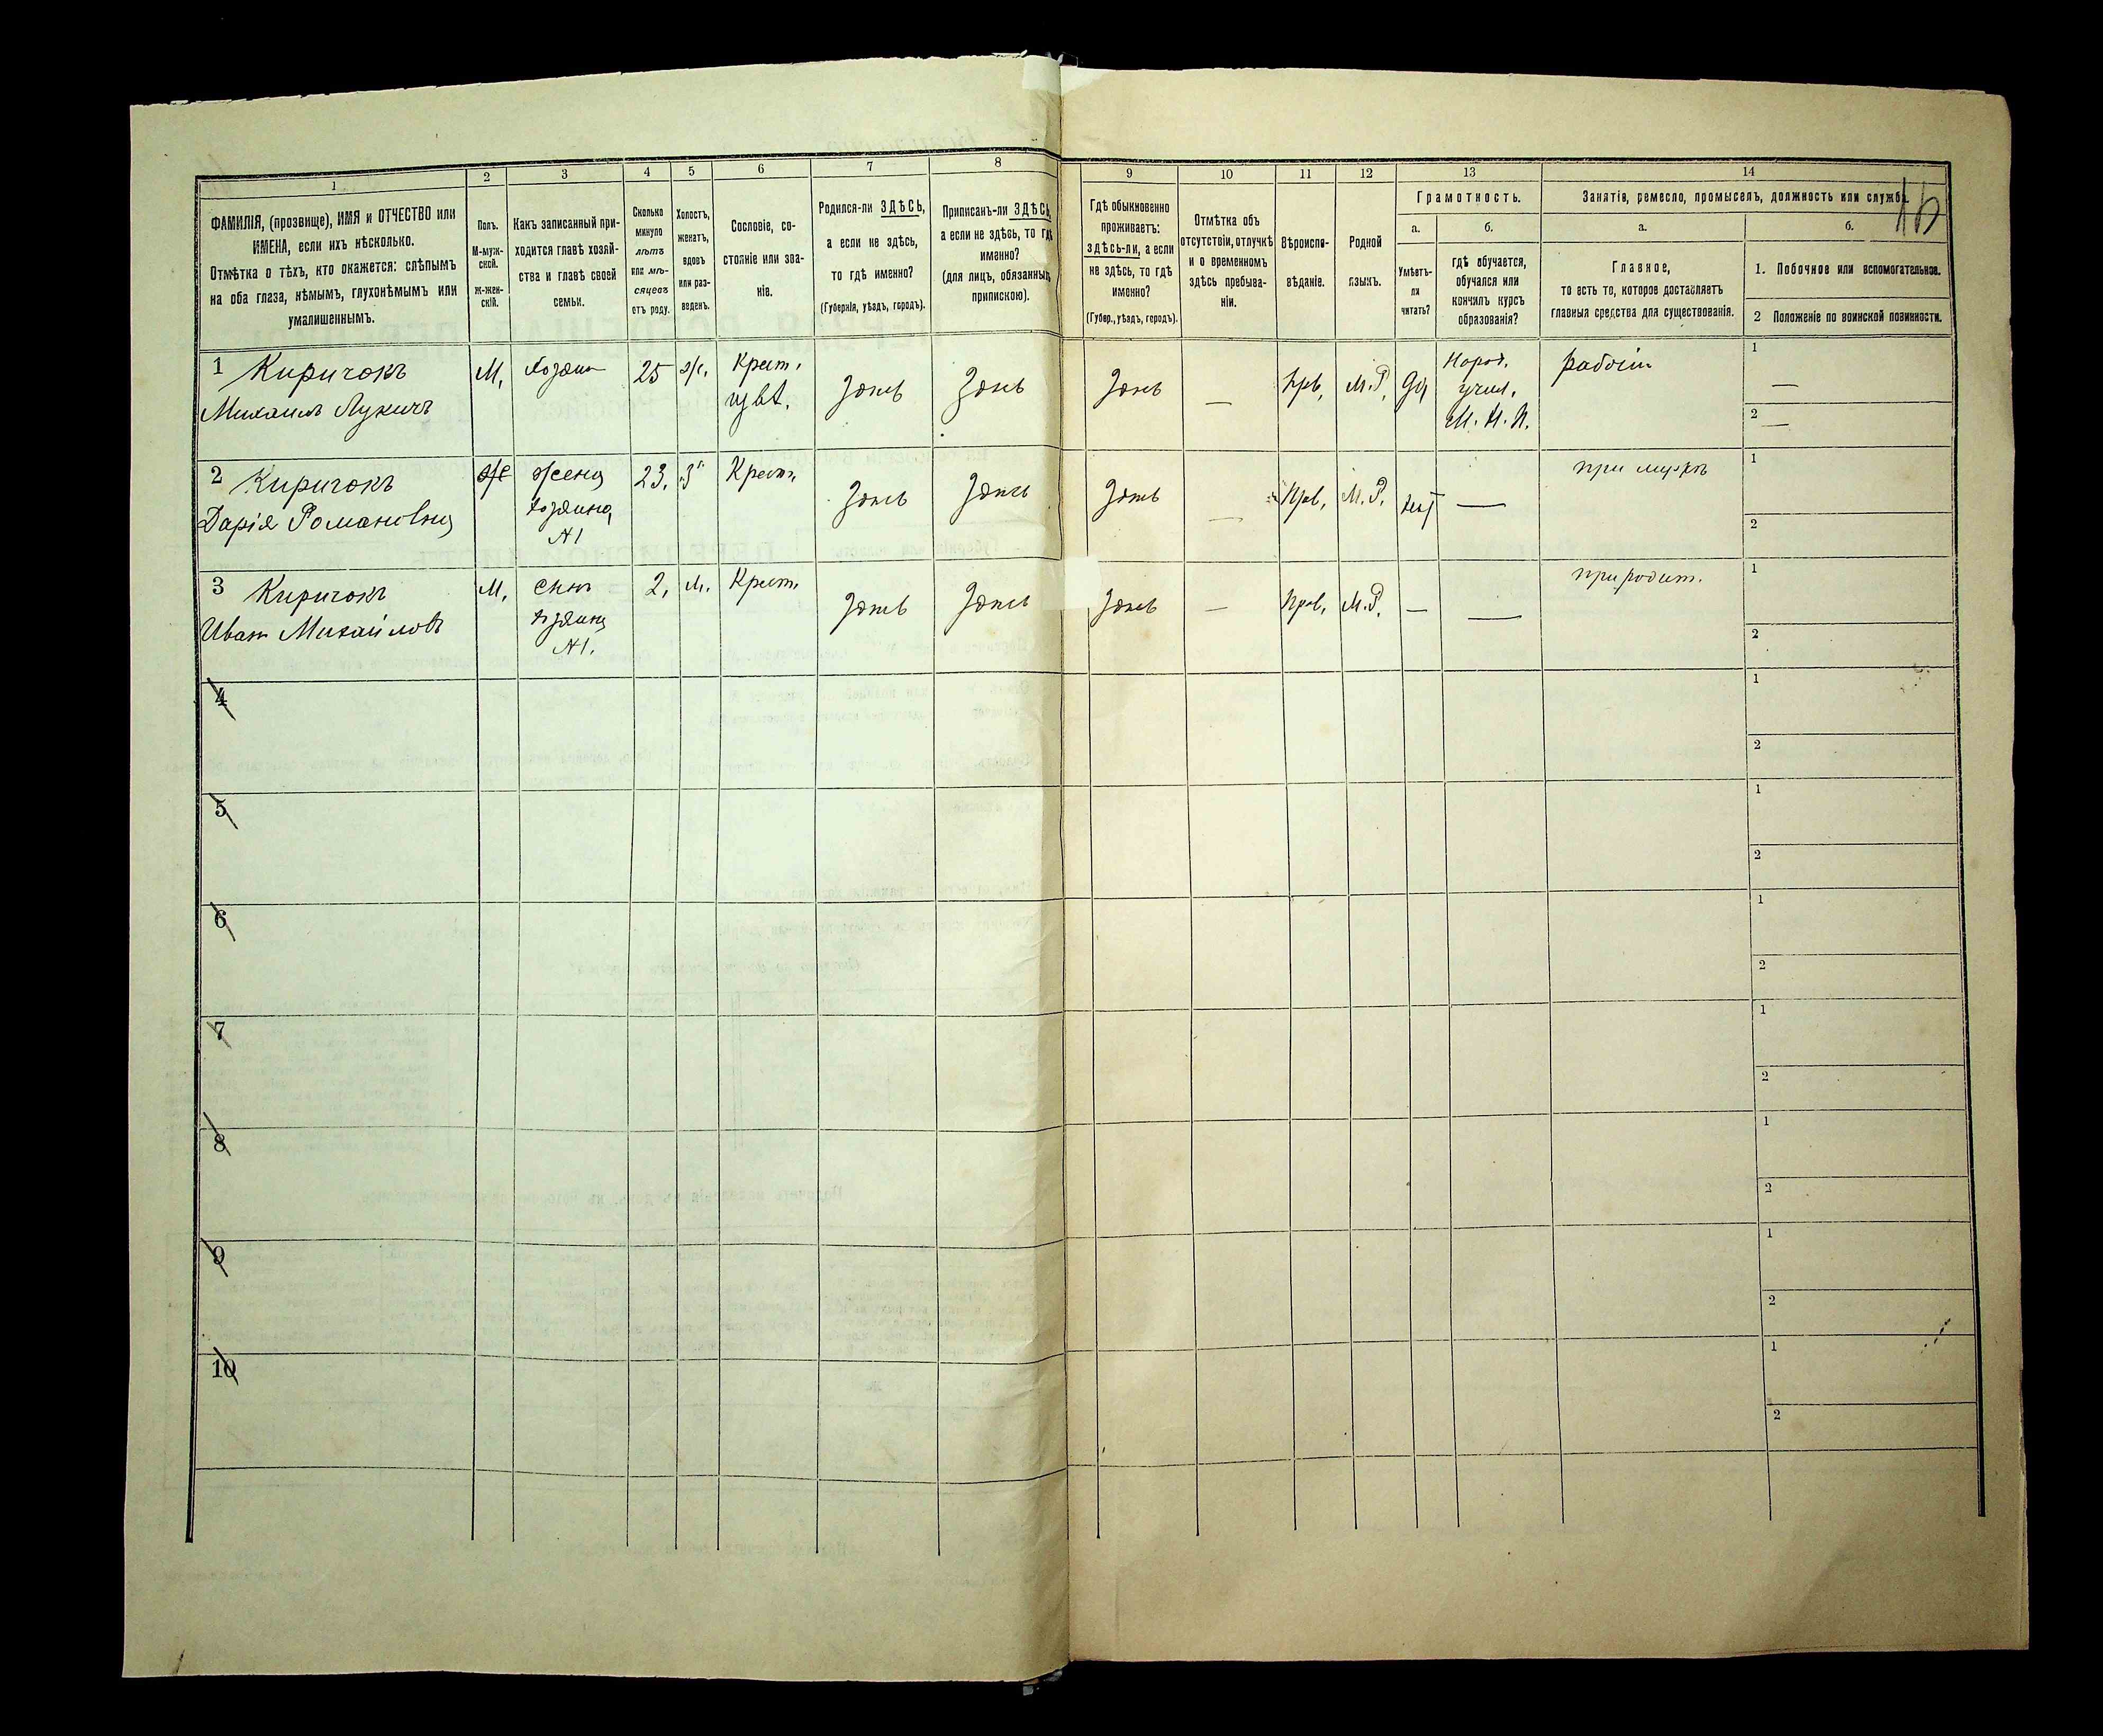 1
2
3
4
5
6
7
8
9
10
11
12
13
14
ФАМИЛІЯ, (прозвище), ИМЯ и ОТЧЕСТВО или
ИМЕНА, если ихъ нѣсколько.
Отмѣтка о тѣхъ, кто окажется: слѣпымъ
на оба глаза, нѣмымъ, глухонѣмымъ или
умалишеннымъ.
Полъ.
М-муж-
ской.
ж-жен-
скій.
Какъ записанный при-
ходится главѣ хозяй-
ства и главѣ своей
семьи.
Сколько
минуло
лѣтъ
или мѣ-
сяцевъ
отъ роду.
Холостъ,
женатъ,
вдовъ
или раз-
веденъ.
Сословіе, со-
стояніе или зва-
ніе.
Родился-ли ЗДѢСЬ,
а если не здѣсь,
то гдѣ именно?
(Губернія, уѣздъ, городъ).
Приписанъ-ли ЗДѢСЬ,
а если не здѣсь, то гдѣ
именно?
(для лицъ, обязанныхъ
припискою).
Гдѣ обыкновенно
проживаетъ:
здѣсь-ли, а если
не здѣсь, то гдѣ
именно?
(Губер., уѣздъ, городъ).
Отмѣтка объ
отсутствіи, отлучкѣ
и о временномъ
здѣсь пребыва-
ніи.
Вѣроиспо-
вѣданіе.
Родной
языкъ.
Грамотность.
а.
Умѣетъ-
ли
читать?
б.
гдѣ обучается,
обучался или
кончилъ курсъ
образованія?
Занятія, ремесло, промыселъ, должность или служба.
а.
Главное,
то есть то, которое доставляетъ
главныя средства для существованія.
б.
1. Побочное или вспомогательное.
2 Положеніе по воинской повинности.
16
1 Киричокъ
Михаилъ Лукичъ
М.
Хозяин
25
ж.
Крест.
Здѣсь
Здѣсь
Здѣсь
—
Прв.
М.Р.
Да
Народ.
учил.
М. Н. П.
рабочій
1
—
2
—
2 Киричокъ
Дарія Романовна
ж
жена
хозяина
№1
23.
З
Крест.
Здѣсь
Здѣсь
Здѣсь
—
Прв.
М.Р.
нет
—
при мужѣ
1
2
3 Киричокъ
Иван Михайловъ
М.
сынъ
хозяина
№1.
2.
М.
Крест.
Здѣсь
Здѣсь
Здѣсь
—
Прв.
М.Р.
—
—
при родит.
1
2
4
1
2
5
1
2
6
1
2
7
1
2
8
1
2
9
1
2
10
1
2